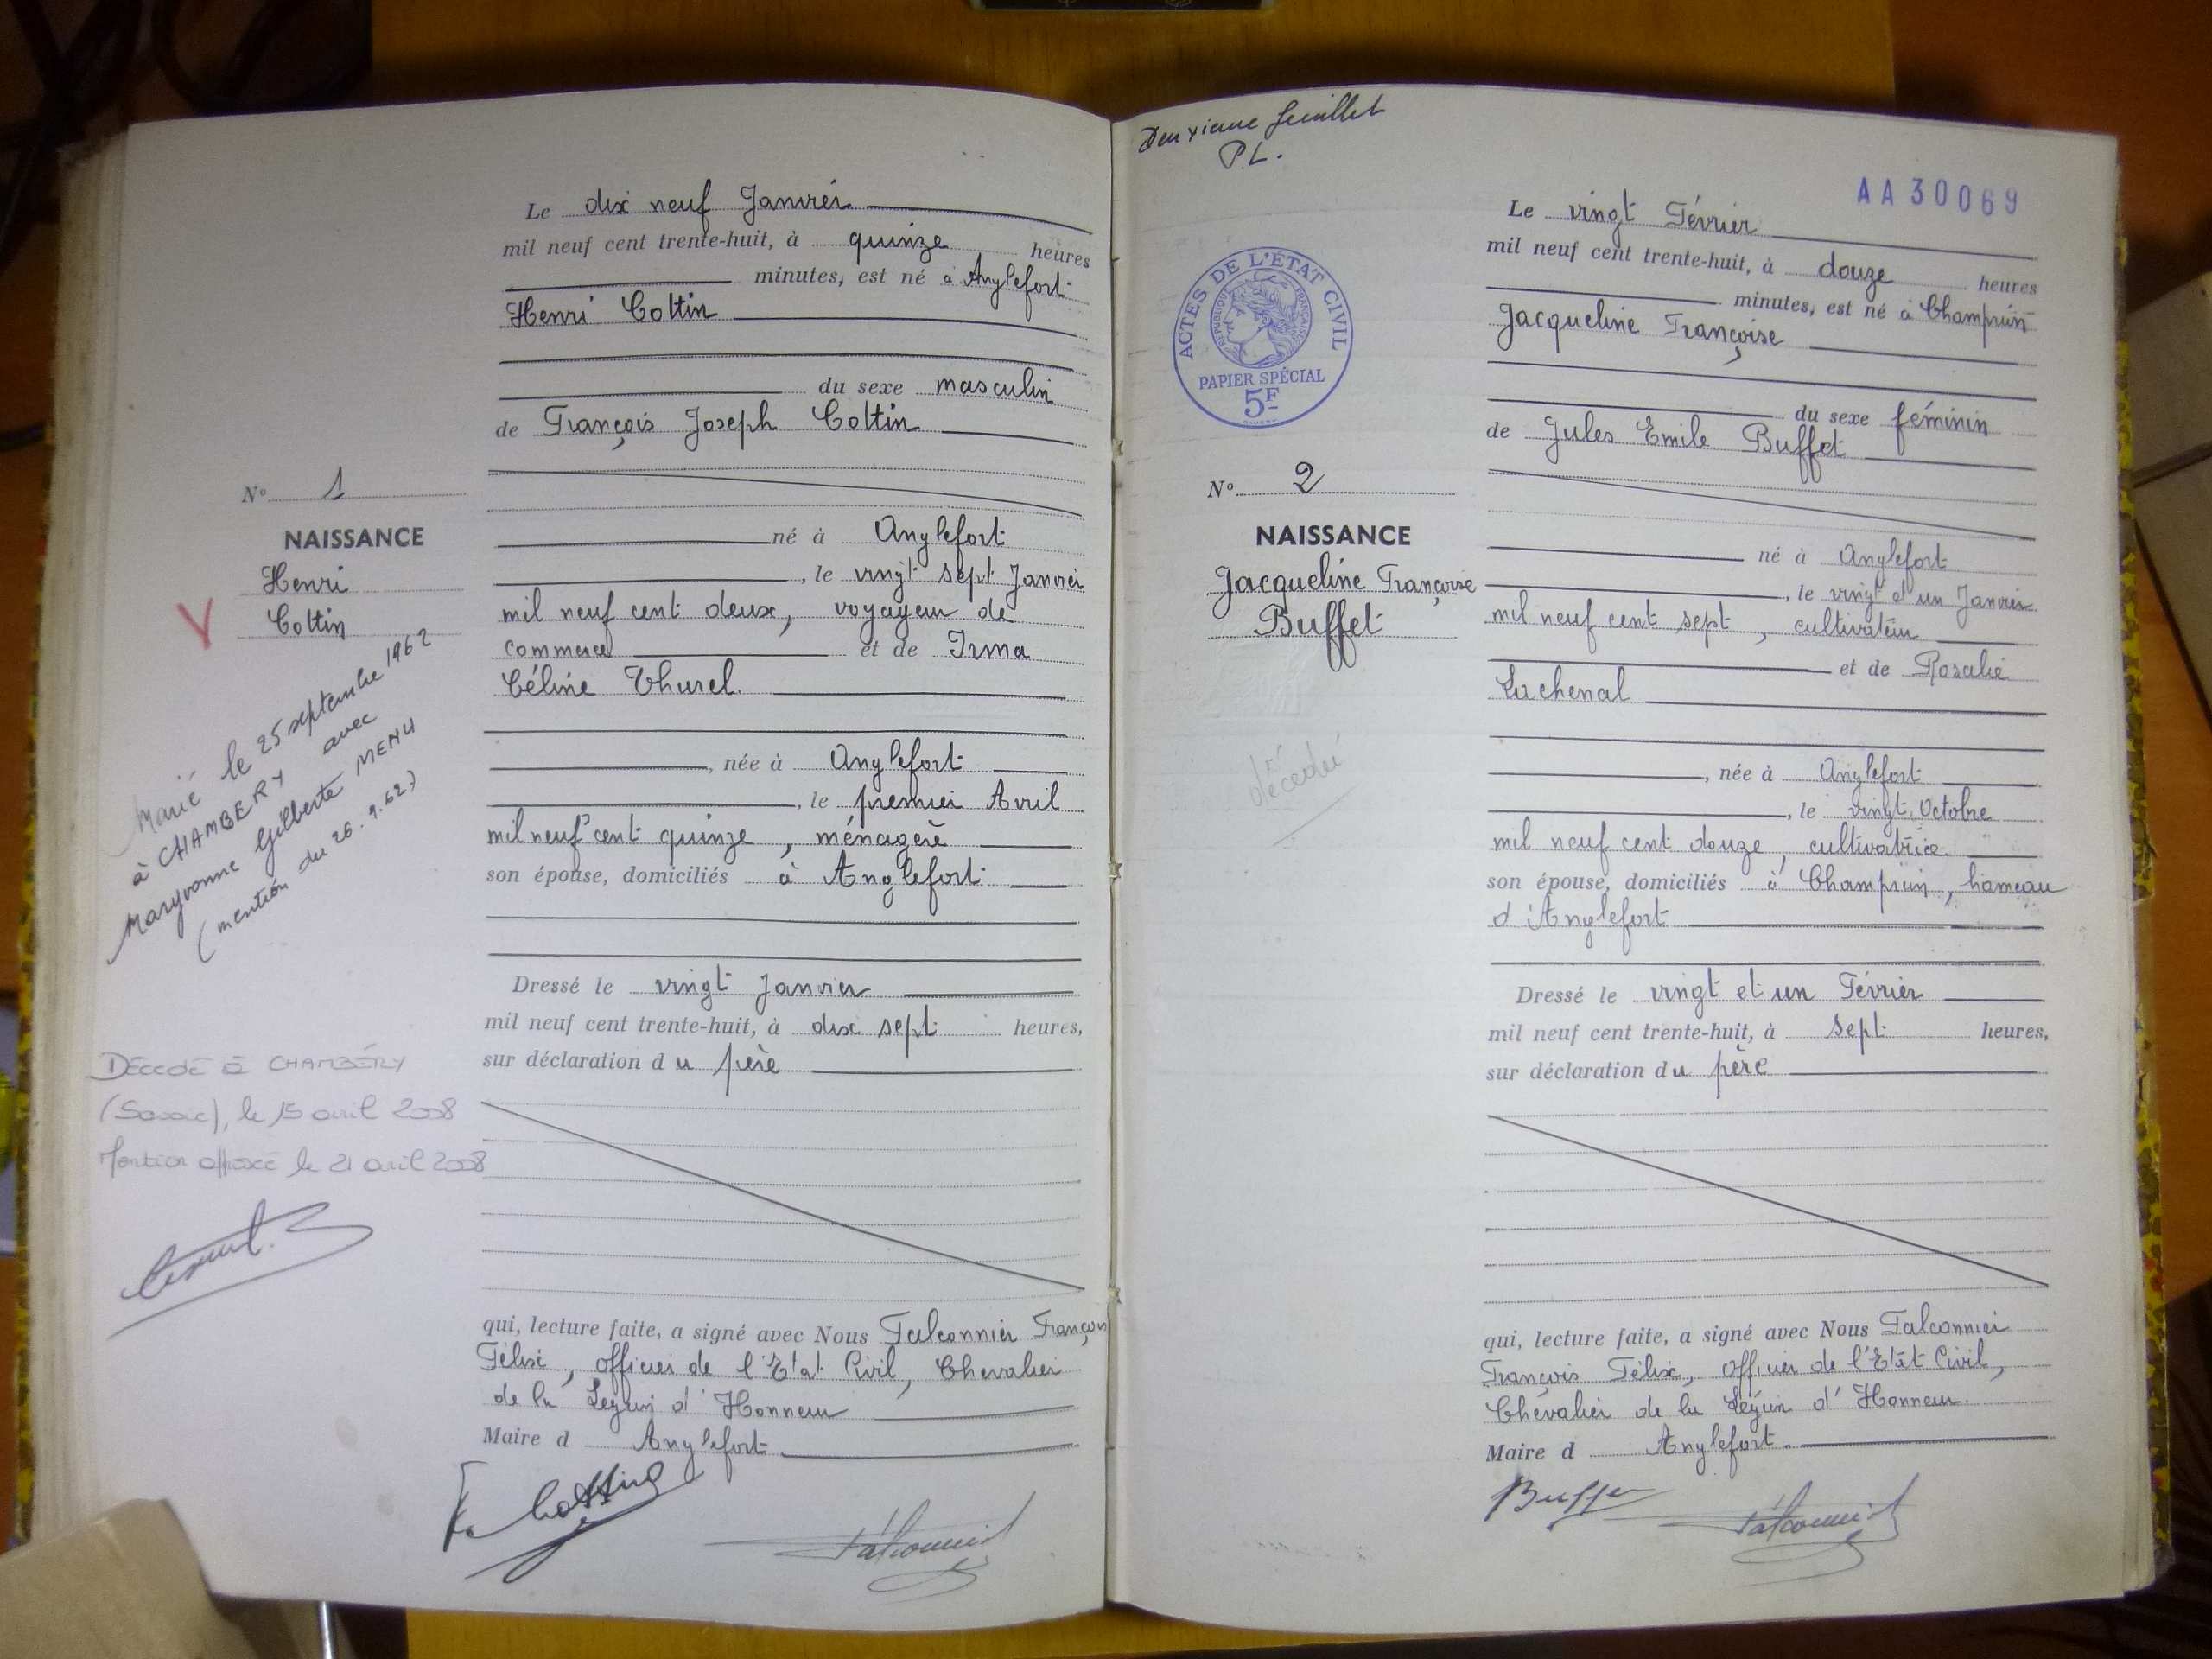 Le dix neuf Janvier
mil neuf cent trente-huit, à quinze heures
minutes, est né à Anglefort
Henri Cottin
du sexe masculin
de François Joseph Cottin
N° 1
NAISSANCE
Henri
Cottin
V
né à Anglefort
, le vingt sept Janvier
mil neuf cent deux, voyageur de
commerce et de Irma
Céline Thurel.
, née à Anglefort
, le premier Avril
mil neuf cent quinze, ménagère
son épouse, domiciliés à Anglefort
Marié le 25 septembre 1962
à CHAMBERY avec
Maryvonne Gilberte MENU
(mention du 26.9.62)
Dressé le vingt Janvier
mil neuf cent trente-huit, à dix sept heures,
sur déclaration du père
Décédé à CHAMBÉRY
(Savoie), le 15 avril 2008
Mention apposée le 21 avril 2008
qui, lecture faite, a signé avec Nous Falconnier François
Félix, officier de l'Etat Civil, Chevalier
de la Légion d'Honneur
Maire d Anglefort
Cottin
Falconnier
Deuxième feuillet
P.L.
AA30069
ACTES DE L'ÉTAT CIVIL
RÉPUBLIQUE FRANÇAISE
PAPIER SPÉCIAL
5F
Le vingt Février
mil neuf cent trente-huit, à douze heures
minutes, est né à Champrin
Jacqueline Françoise
du sexe féminin
de Jules Emile Buffet
N° 2
NAISSANCE
Jacqueline Françoise
Buffet
décédé
né à Anglefort
, le vingt et un Janvier
mil neuf cent sept, cultivateur
et de Rosalie
Luchenal
, née à Anglefort
, le vingt Octobre
mil neuf cent douze, cultivatrice
son épouse, domiciliés à Champrin, hameau
d'Anglefort
Dressé le vingt et un Février
mil neuf cent trente-huit, à sept heures,
sur déclaration du père
qui, lecture faite, a signé avec Nous Falconnier
François Félix, officier de l'Etat Civil,
Chevalier de la Légion d'Honneur.
Maire d Anglefort.
Buffet
Falconnier